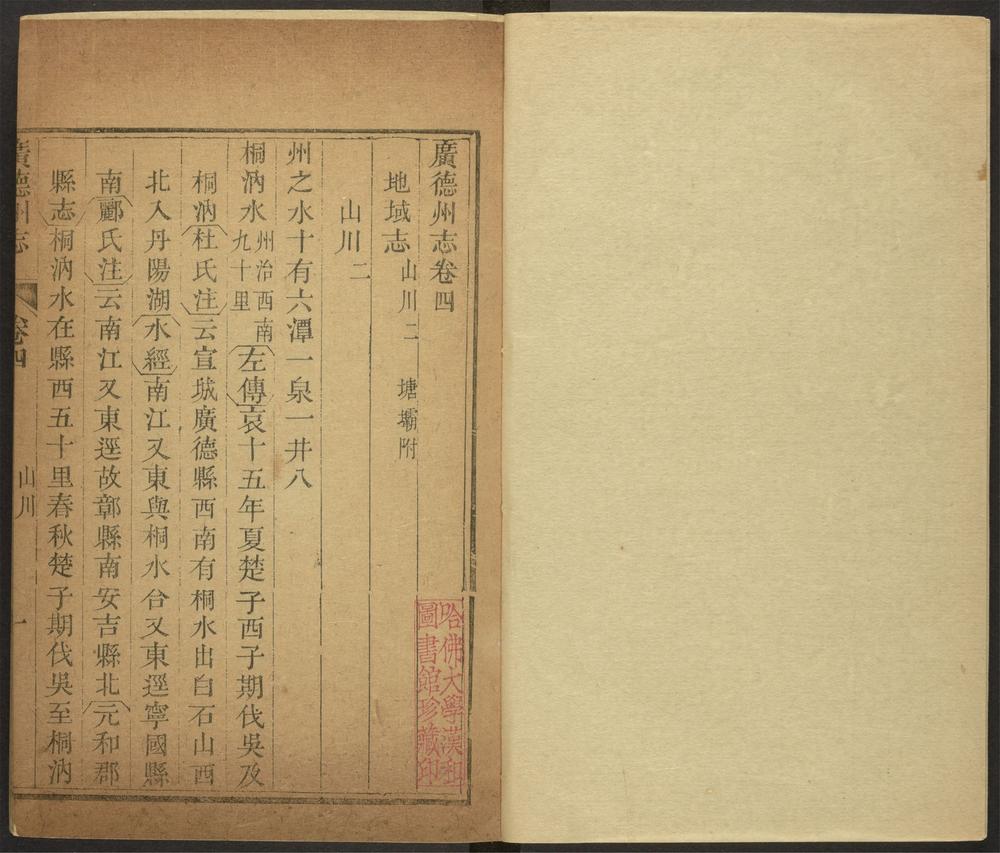 廣德州志卷四
地域志 山川二 塘壩附
山川二
州之水十有六潭一泉一井八
桐汭水 州治西南九十里 左傳哀十五年夏楚子西子期伐吳及
桐汭杜氏注云宣城廣德縣西南有桐水出白石山西
北入丹陽湖水經南江又東與桐水合又東逕寧國縣
南酈氏注云南江又東逕故鄣縣南安吉縣北元和郡
縣志桐汭水在縣西五十里春秋楚子期伐吳至桐汭
廣德州志 卷四 山川 一
哈佛大學漢和
圖書館珍藏印